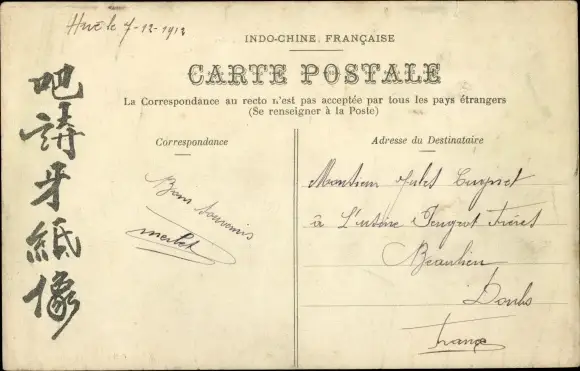 Hué le 7-12-1912
INDO-CHINE FRANÇAISE
CARTE POSTALE
La Correspondance au recto n'est pas acceptée par tous les pays étrangers
(Se renseigner à la Poste)
吧
牙
紙
像
Correspondance
Bons souvenirs
Adresse du Destinataire
Monsieur Jules
à L'usine Peugeot Frères
Beaulieu
Doubs
France